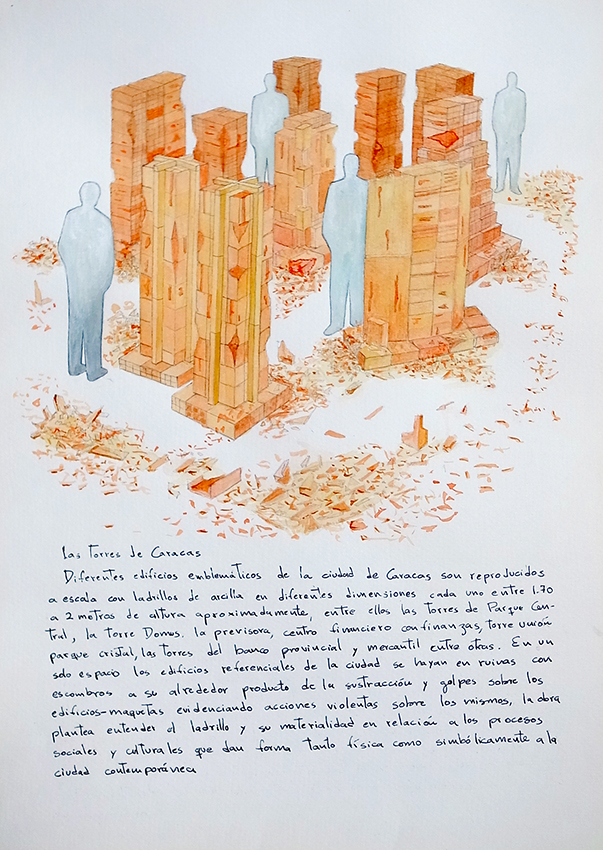 Las Torres de Caracas
Diferentes edificios emblemáticos de la ciudad de Caracas son reproducidos
a escala con ladrillos de arcilla en diferentes dimensiones cada uno entre 1.70
a 2 metros de altura aproximadamente, entre ellos las torres de Parque Cen-
tral, la torre Domus. la previsora, centro financiero confinanzas, torre unión
parque cristal, las torres del banco provincial y mercantil entre otras. En un
solo espacio los edificios referenciales de la ciudad se hayan en ruinas con
escombros a su alrededor producto de la sustracción y golpes sobre los
edificios-maquetas evidenciando acciones violentas sobre los mismos, la obra
plantea entender el ladrillo y su materialidad en relación a los procesos
sociales y culturales que dan forma tanto física como simbólicamente a la
ciudad contemporánea